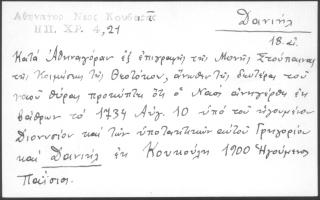 Αθηνάγορ. Νέος Κουβαρᾶς
ΗΠ. ΧΡ. 4, 21
Δανιήλ
18. αἰ.
Κατὰ Ἀθηναγόραν ἐξ ἐπιγραφῆς τῆς Μονῆς Στούπαινας
τῆς Κοιμήσεως τῆς Θεοτόκου, ἄνωθεν τῆς δυτέρας τοῦ
ναοῦ θύρας προκύπτει ὅτι ὁ Ναὸς ἀνηγέρθη ἐκ
βάθρων τὸ 1734 Αὐγ. 10 ὑπὸ τοῦ ἡγουμένου
Διονυσίου καὶ τῶν ὑποτακτικῶν αὐτοῦ Γρηγορίου
καὶ Δανιήλ ἐκ Κουκούλη 1900 Ἡγούμενος
Παΐσιος.